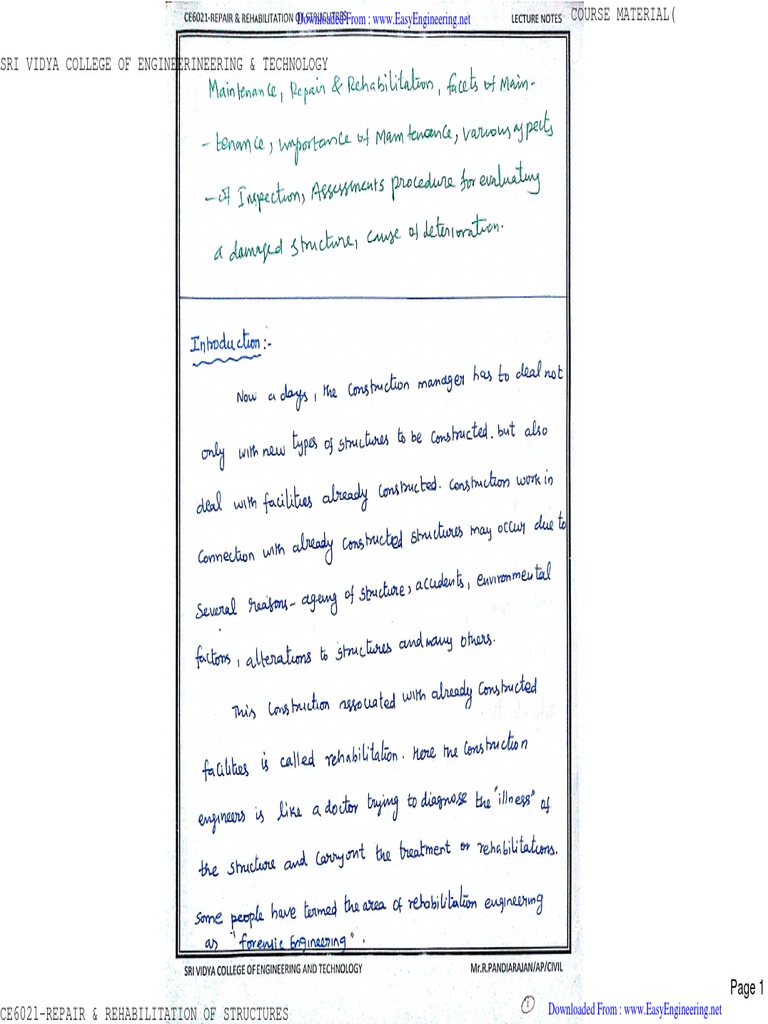 CE6021-REPAIR & REHABILITATION OF STRUCUTRES Downloaded From : www.EasyEngineering.net LECTURE NOTES COURSE MATERIAL(
SRI VIDYA COLLEGE OF ENGINEERINEERING & TECHNOLOGY
Maintenance, Repair & Rehabilitation, facets of Main-
- tenance, importance of Maintenance, various aspects
- of Inspection, Assessments procedure for evaluating
a damaged structure, cause of deterioration.
Introduction:-
Now a days, the construction manager has to deal not
only with new types of structures to be constructed. but also
deal with facilities already constructed. Construction work in
connection with already constructed structures may occur due to
several reasons- ageing of structure, accidents, environmental
factors, alterations to structures and many others.
This construction associated with already constructed
facilities is called rehabilitation. Here the construction
engineers is like a doctor trying to diagnose the "illness" of
the structure and carryout the treatment or rehabilitations.
some people have termed the area of rehabilitation engineering
as "forensic Engineering".
SRI VIDYA COLLEGE OF ENGINEERING AND TECHNOLOGY Mr.R.PANDIARAJAN/AP/CIVIL
Page 1
1
CE6021-REPAIR & REHABILITATION OF STRUCTURES Downloaded From : www.EasyEngineering.net